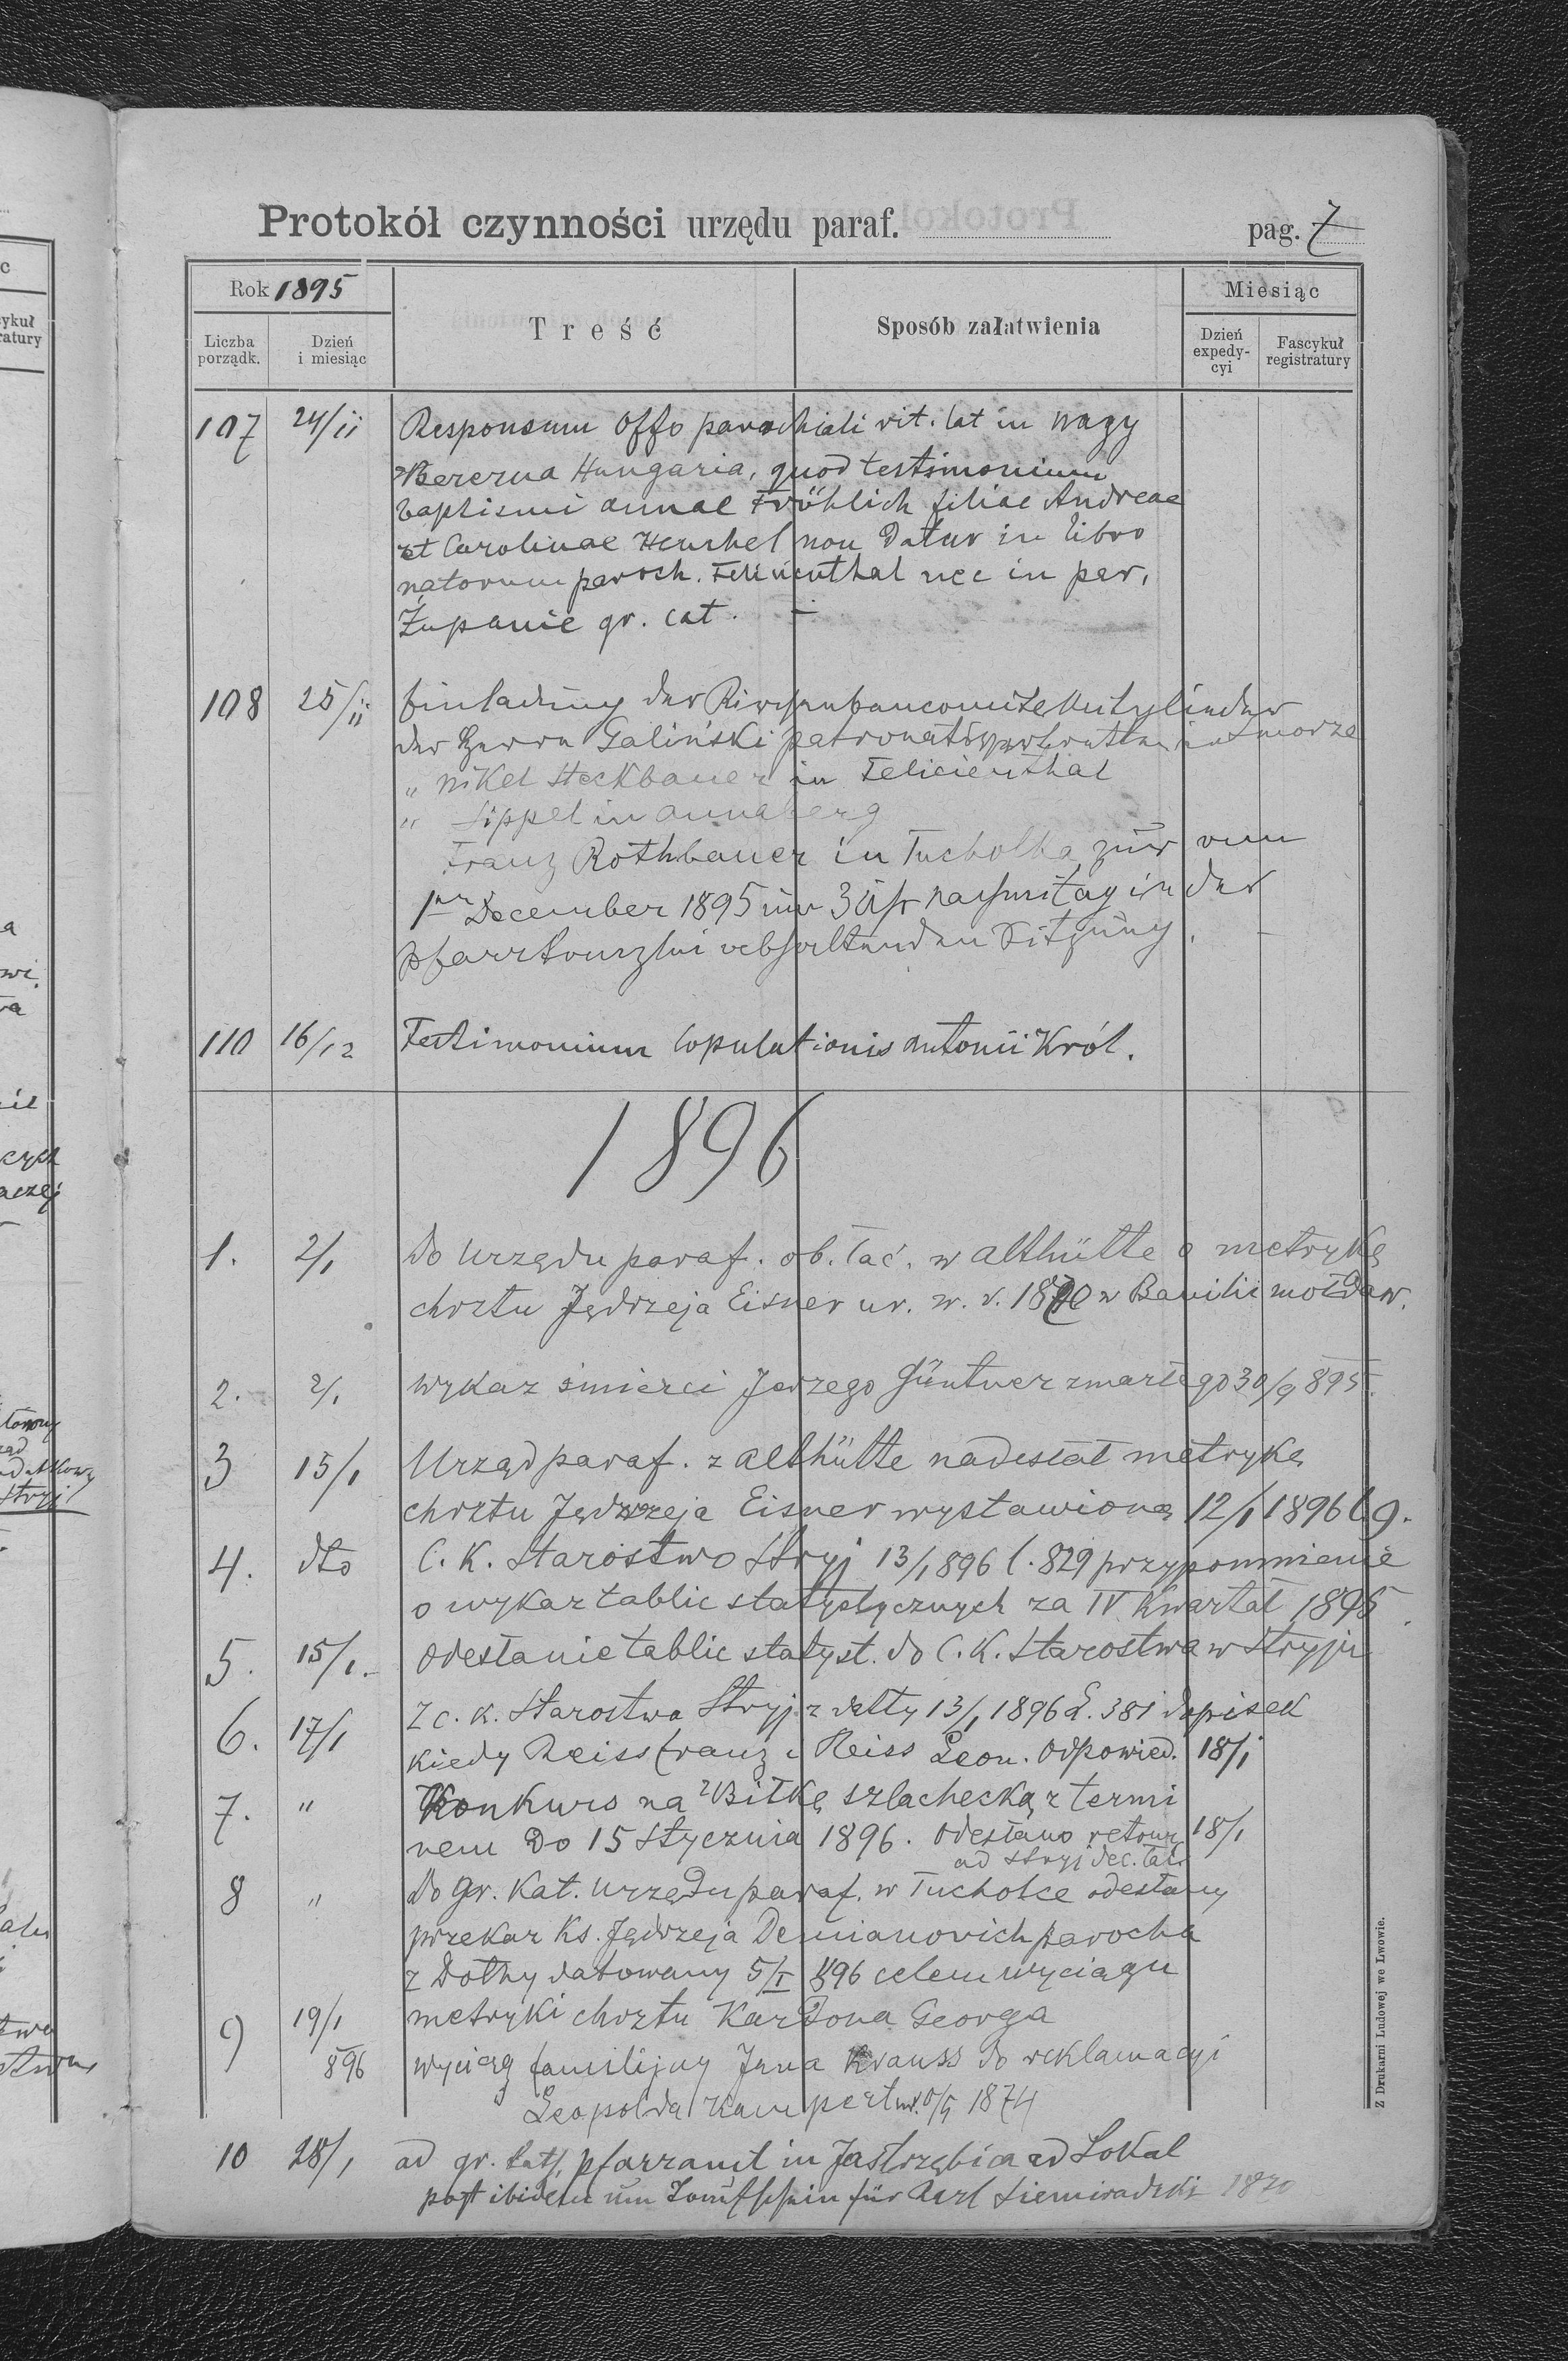 Protokół czynności urzędu paraf. pag. 7
Rok 1895
Liczba porządk.
Dzień i miesiąc
Treść
Sposób załatwienia
Miesiąc
Dzień expedycyi
Fascykuł registratury
107 24/11 Responsum Offo parochiali rit. lat in Nagy
Berezna Hungaria, quod testimonium
baptismi Annae Fröhlich filiae Andreae
et Carolinae Henshel non datur in libro
natorum paroch. Felicienthal nec in par.
Żupanie gr. cat. -
108 25/11 Einladung der
der Herrn Galiński in Smorze
" Nikel Steckbauer in Felicienthal
" Sippel in Annaberg
Franz Rothbauer in Tucholka zur am
1ten December 1895 um 3 Uhr Nachmitag in der
Pfarrkanzlei abhaltenden Sitzung. -
110 16/12 Testimonium Copulationis Antonii Król.
1896
1. 2/1 Do Urzędu paraf. ob. łać. w Althütte o metrykę
chrztu Jędrzeja Eisner ur. w. r. w Banilii mołdaw.
2. 2/1 Wykaz śmierci Jerzego Güntner zmarłego 30/9 895.
3 15/1 Urząd paraf. z Althütte nadesłał metrykę
chrztu Jędrzeja Eisner wystawioną 12/1 1896 l. 9.
4. dto C. K. Starostwo Stryj 13/1 896 l. 829 przypomnienie
o wykaz tablic statystycznych za IV Kwartał 1895
5. 15/1.- Odesłanie tablic statyst. do C. K. Starostwa w Stryju
6. 17/1 Z c. k. Starostwa Stryj z datty 13/1 1896 L. 381 dopisek
kiedy Reiss Franz i Reiss Leon. Odpowied. 18/1
7. " Konkurs na Biłkę szlachecką z termi
nem do 15 Stycznia 1896. Odesłano retour 18/1
ad Stryj dec. łać.
8 " Do Gr. Kat. Urzędu paraf. w Tucholce odesłany
przekaz Ks. Jędrzeja Demianovich parocha
z Dołhy datowany 5/I 896 celem wyciągu
metryki chrztu Kardona Georga
9 19/1 896 Wyciąg familijny Jana Krauss do reklamacyi
Leopolda Kampert 1874
10 28/1 ad gr. kath. Pfarramt in Jastrzębica ad Sokal
post ibidem um Taufschein für Karl Siemiradzki 1870
Z Drukarni Ludowej we Lwowie.